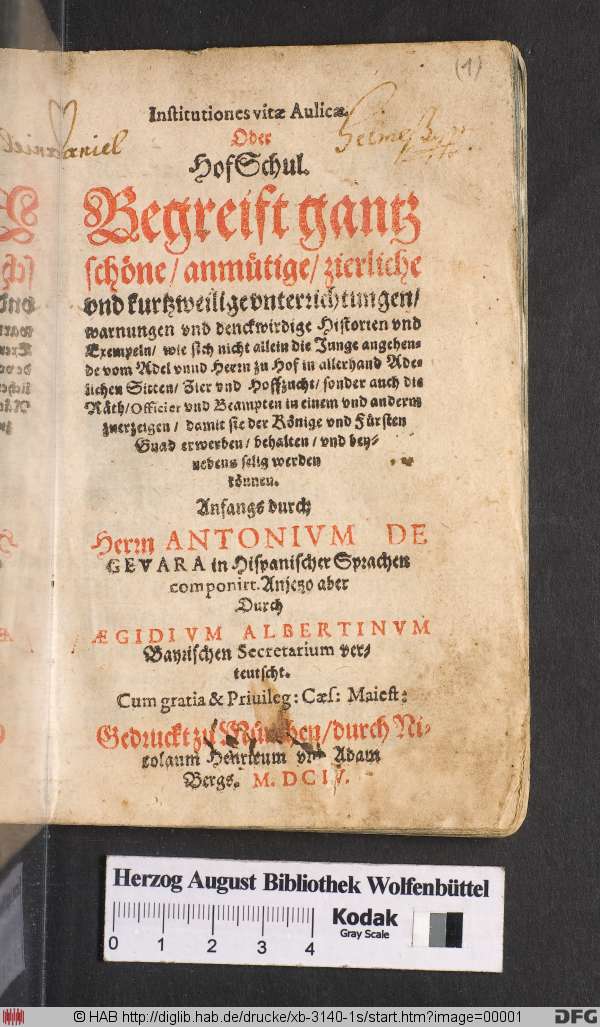 (1)
Institutiones vitæ Aulicæ.
Oder
HofSchul.
Begreift gantz
schöne/ anmütige/ zierliche
vnd kurtzweilige vnterrichtungen/
warnungen vnd denckwirdige Historien vnd
Exempeln/ wie sich nicht allein die Junge angehen-
de vom Adel vnnd Herrn zu Hof in allerhand Ade-
lichen Sitten/ Zier vnd Hoffzucht/ sonder auch die
Räth/ Officier vnd Beampten in einem vnd anderm
zuerzeigen/ damit sie der Könige vnd Fürsten
Gnad erwerben/ behalten/ vnd bey-
nebens selig werden
können.
Anfangs durch
Herrn ANTONIVM DE
GEVARA in Hispanischer Sprachen
componirt. Anjetzo aber
Durch
ÆGIDIVM ALBERTINVM
Bayrischen Secretarium ver-
teutscht.
Cum gratia & Priuileg: Cæs: Maiest:
Gedruckt zu München/ durch Ni-
colaum Henricum vnd Adam
Bergs. M. DC
Herzog August Bibliothek Wolfenbüttel
0 1 2 3 4
Kodak
Gray Scale
© HAB http://diglib.hab.de/drucke/xb-3140-1s/start.htm?image=00001
DFG